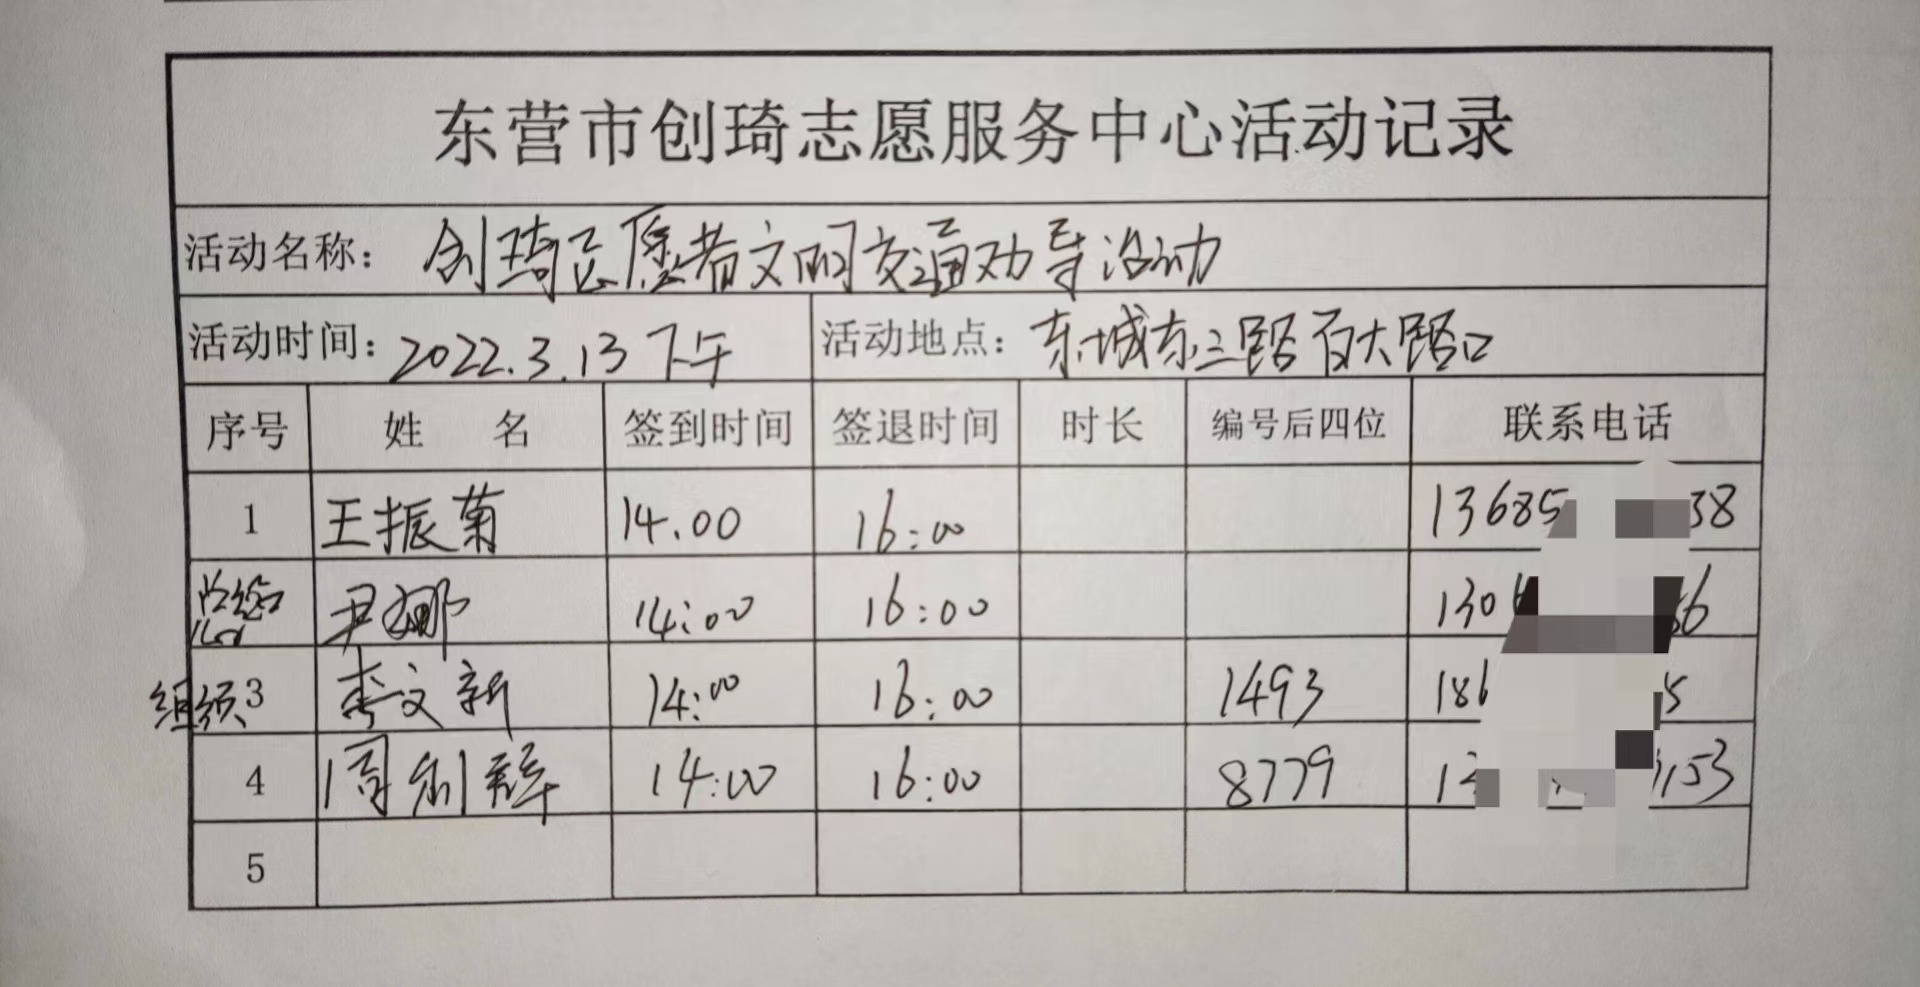 东营市创琦志愿服务中心活动记录
活动名称：创琦志愿者文明交通劝导活动
活动时间：2022.3.13下午 活动地点：东城东三路百大路口
序号 姓 名 签到时间 签退时间 时长 编号后四位 联系电话
1 王振菊 14.00 16:00 13685 38
尹娜 14:00 16:00 130 66
组织 3 李文新 14:00 16:00 1493 186 5
4 周利 14:00 16:00 8779 153
5